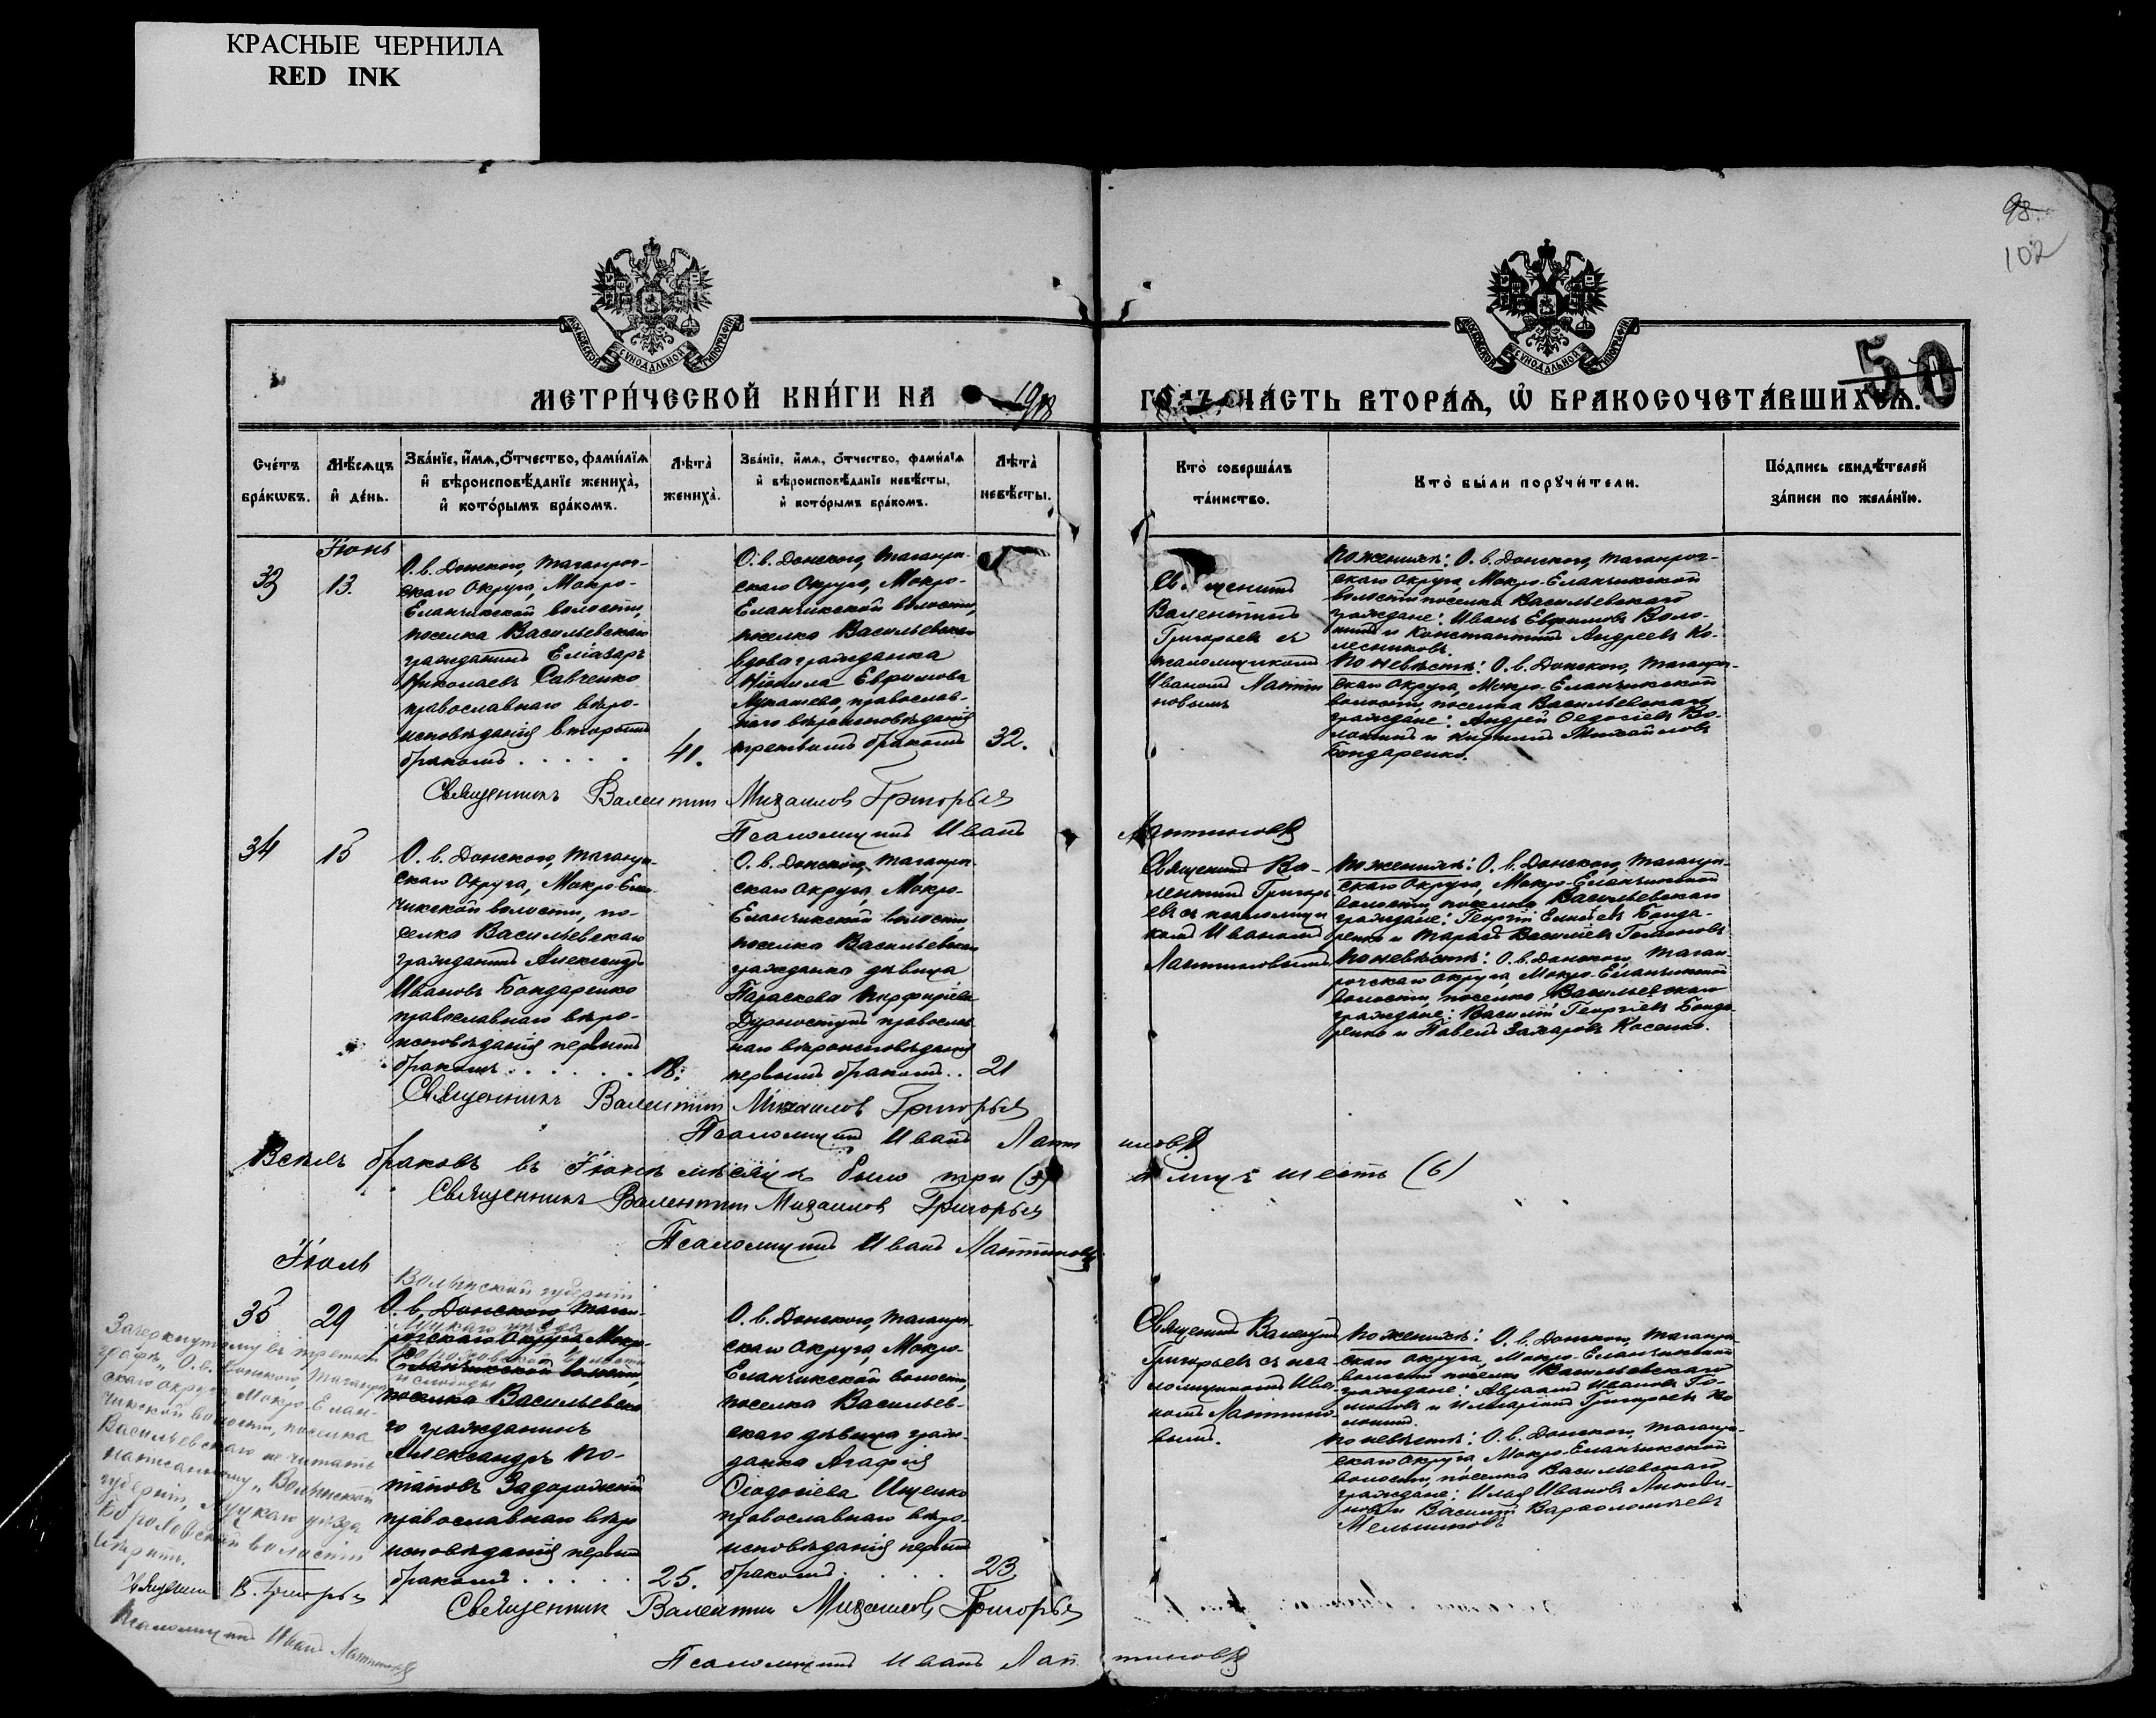 КРАСНЫЕ ЧЕРНИЛА
RED INK
98.
102
МОСКОВСКОЙ СѴНОДАЛЬНОЙ ТИПОГРАФІИ
МОСКОВСКОЙ СѴНОДАЛЬНОЙ ТИПОГРАФІИ
50
МЕТРИ́ЧЕСКОЙ КНИ́ГИ НА 1918
ГО́ДЪ ЧА́СТЬ ВТОРА́Ѧ, Ѡ҆ БРАКОСОЧЕТА́ВШИХСѦ.
Сче́тъ
бра́кѡвъ.
Мѣ́сѧцъ
и҆ де́нь.
Зва́нїе, и҆́мѧ, ѻ҆́тчество, фами́лїѧ
и҆ вѣроисповѣ́данїе жениха̀,
и҆ кото́рымъ бра́комъ.
Лѣта̀
жениха̀.
Зва́нїе, и҆́мѧ, ѻ҆́тчество, фами́лїѧ
и҆ вѣроисповѣ́данїе невѣ́сты,
и҆ кото́рымъ бра́комъ.
Лѣта̀
невѣ́сты.
Кто̀ соверша́лъ
та́инство.
Кто̀ бы́ли порꙋчи́тели.
По́дпись свидѣ́телей
за́писи по жела́нїю.
Іюнь
33
13.
О. в. Донского, Таганрог-
скаго Округа, Мокро-
Еланчикской волости,
поселка Васильевскаго
гражданинъ Еліазаръ
Николаевъ Савченко
православнаго вѣро-
исповѣданія вторымъ
бракомъ . . . . .
41.
О. в. Донского, Таганрог-
скаго Округа, Мокро-
Еланчикской волости,
поселка Васильевскаго
вдова гражданка
Неонила Евфимова
Лукашева, православ-
наго вѣроисповѣданія
третьимъ бракомъ
32.
Валентинъ
Григорьевъ съ
псаломщикомъ
Иваномъ Лапти
новымъ
По женихѣ: О. в. Донского, Таганрог-
скаго округа, Мокро-Еланчикской
волости поселка Васильевскаго
граждане: Иванъ Евфимовъ Воло-
шинъ и Константинъ Андреевъ Ко-
лесниковъ.
По невѣстѣ: О. в. Донского, Таганрог-
скаго округа, Мокро-Еланчикской
волости, поселка Васильевскаго
граждане: Андрей Ѳедосіевъ Во-
лошинъ и Кириллъ Михайловъ
Бондаренко.
Священникъ Валентин Михаилов Григорьев
Псаломщикъ Иванъ Лаптиновъ
34
15
О. в. Донского, Таганрог-
скаго Округа, Мокро-Елан-
чикской волости, по-
селка Васильевскаго
гражданинъ Александръ
Ивановъ Бондаренко
православнаго вѣро-
исповѣданія первымъ
бракомъ . . . . . .
18.
О. в. Донского, Таганрог-
скаго Округа, Мокро-
Еланчикской волости,
поселка Васильевскаго
гражданка дѣвица
Параскева Порфиріева
православ-
наго вѣроисповѣданія
первымъ бракомъ . .
21
Священникъ Ва-
лентинъ Григорь
евъ съ псаломщи
комъ Иваномъ
Лаптиновымъ
По женихѣ: О. в. Донского, Таганрог-
скаго округа, Мокро-Еланчикской
волости, поселка Васильевскаго
граждане: Георгій Елисѣевъ Бонда-
ренко и Тарасъ Василіевъ
По невѣстѣ: О. в. Донского, Таган-
рогскаго округа, Мокро-Еланчикской
волости, поселка Васильевскаго
граждане: Василій Георгіевъ Бонда-
ренко и Павелъ Захаровъ Косенко.
Священникъ Валентин Михаилов Григорьев
Псаломщикъ Иванъ Лаптиновъ
Всѣхъ браковъ въ Іюнѣ мѣсяцѣ было три (3) а лицъ шесть (6)
Священникъ Валентин Михаилов Григорьев
Псаломщикъ Иванъ Лаптиновъ
Іюль
35
29
Волынской губерніи
О. в. Донского Таган-
Луцкаго уѣзда
рогскаго Округа Мокро-
волости
Еланчикской волости,
и слободы
поселка Васильевска-
го гражданинъ
Александръ По-
таповъ Задорожный
православнаго вѣро
исповѣданія первымъ
бракомъ . . . . .
25.
О. в. Донского, Таганрог-
скаго Округа, Мокро-
Еланчикской волости,
поселка Васильев-
скаго дѣвица граж-
данка Агафія
Ѳеодосіева Ищенко
православнаго вѣро-
исповѣданія первымъ
бракомъ . . . .
23.
Священникъ Валентинъ
Григорьевъ съ пса-
ломщикомъ Ива-
номъ Лаптино-
вымъ.
По женихѣ: О. в. Донского, Таганрог-
скаго округа, Мокро-Еланчикской
волости поселка Васильевскаго
граждане: Авраамъ Ивановъ
и Иларіонъ Григорьевъ
По невѣстѣ: О. в. Донского, Таганрог-
скаго округа, Мокро-Еланчикской
волости, поселка Васильевскаго
граждане: Илья Ивановъ
и Василій Варѳоломѣевъ
Мельниковъ
Зачеркнутому въ третьей
графѣ „О. в. Донского, Таганрог-
скаго округа Мокро-Елан-
чикской волости, поселка
Васильевскаго не читать
написанному „Волынской
губерніи, Луцкаго уѣзда
волости
вѣрить.
Священникъ В. Григорьев
Псаломщикъ Иванъ Лаптиновъ
Священник Валентин Михаилов Григорьев
Псаломщикъ Иванъ Лаптиновъ